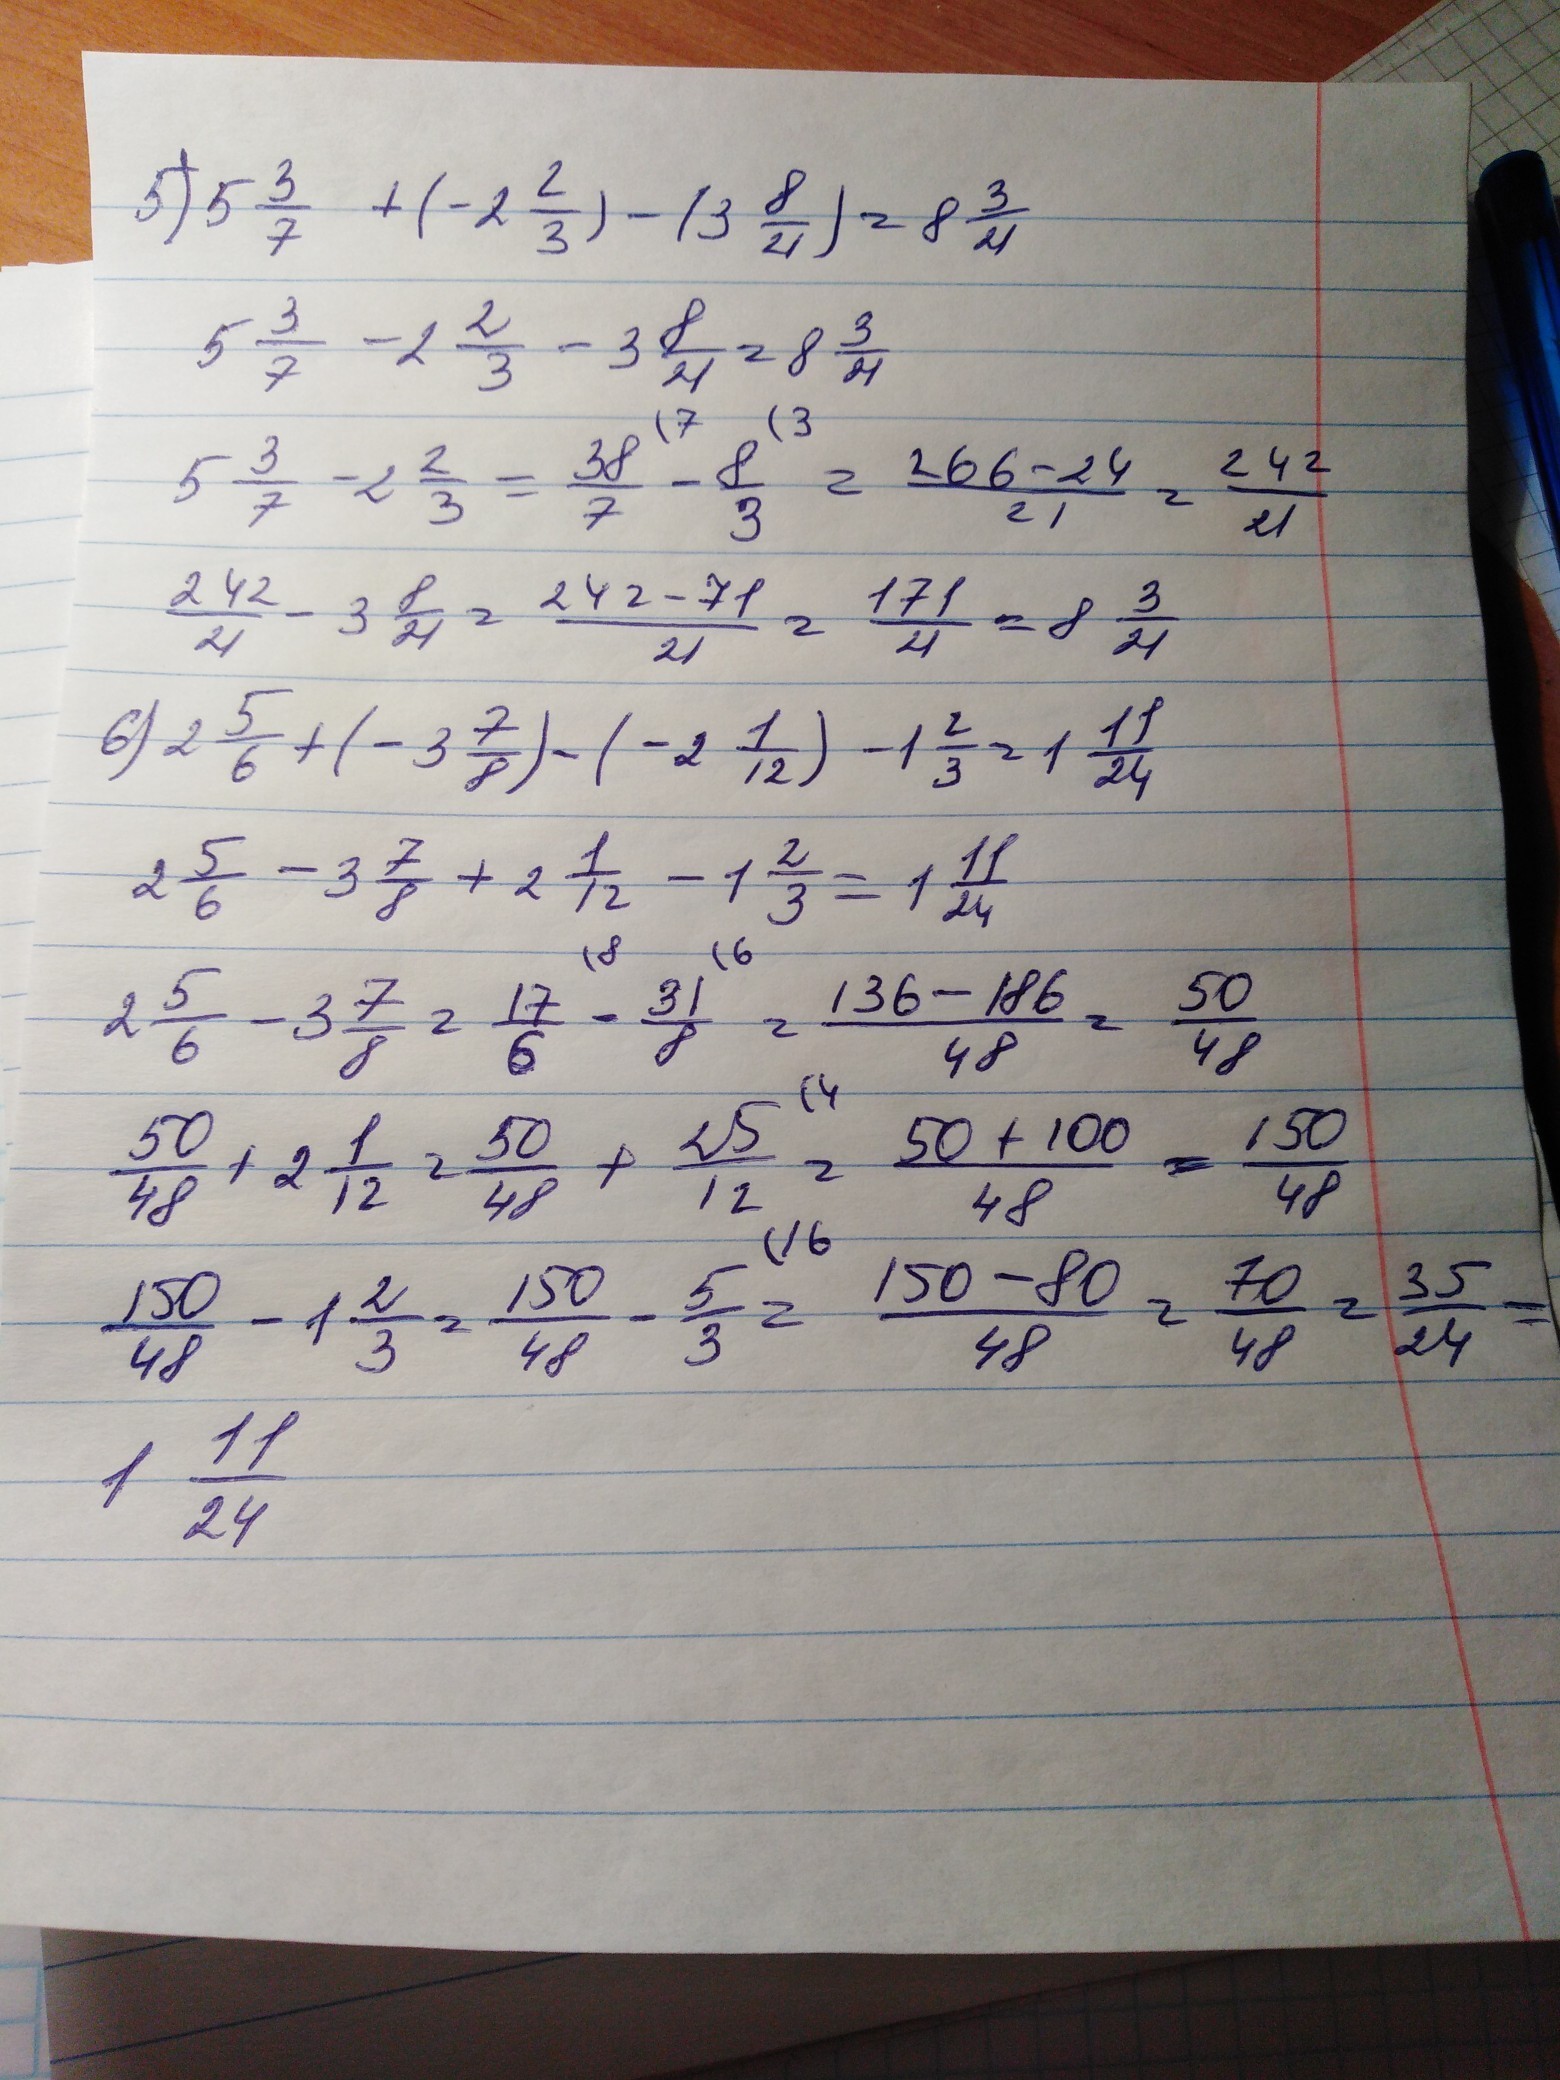 5) 5 3/7 + (-2 2/3) - (3 8/21) = 8 3/21
5 3/7 - 2 2/3 - 3 8/21 = 8 3/21
5 3/7 - 2 2/3 = 38/7 (7 - 8/3 (3 = 266-24/21 = 242/21
242/21 - 3 8/21 = 242-71/21 = 171/21 = 8 3/21
6) 2 5/6 + (-3 7/8) - (-2 1/12) - 1 2/3 = 1 11/24
2 5/6 - 3 7/8 + 2 1/12 - 1 2/3 = 1 11/24
2 5/6 - 3 7/8 = 17/6 (8 - 31/8 (6 = 136-186/48 = 50/48
50/48 + 2 1/12 = 50/48 + 25/12 (4 = 50+100/48 = 150/48
150/48 - 1 2/3 = 150/48 - 5/3 (16 = 150-80/48 = 70/48 = 35/24 =
1 11/24